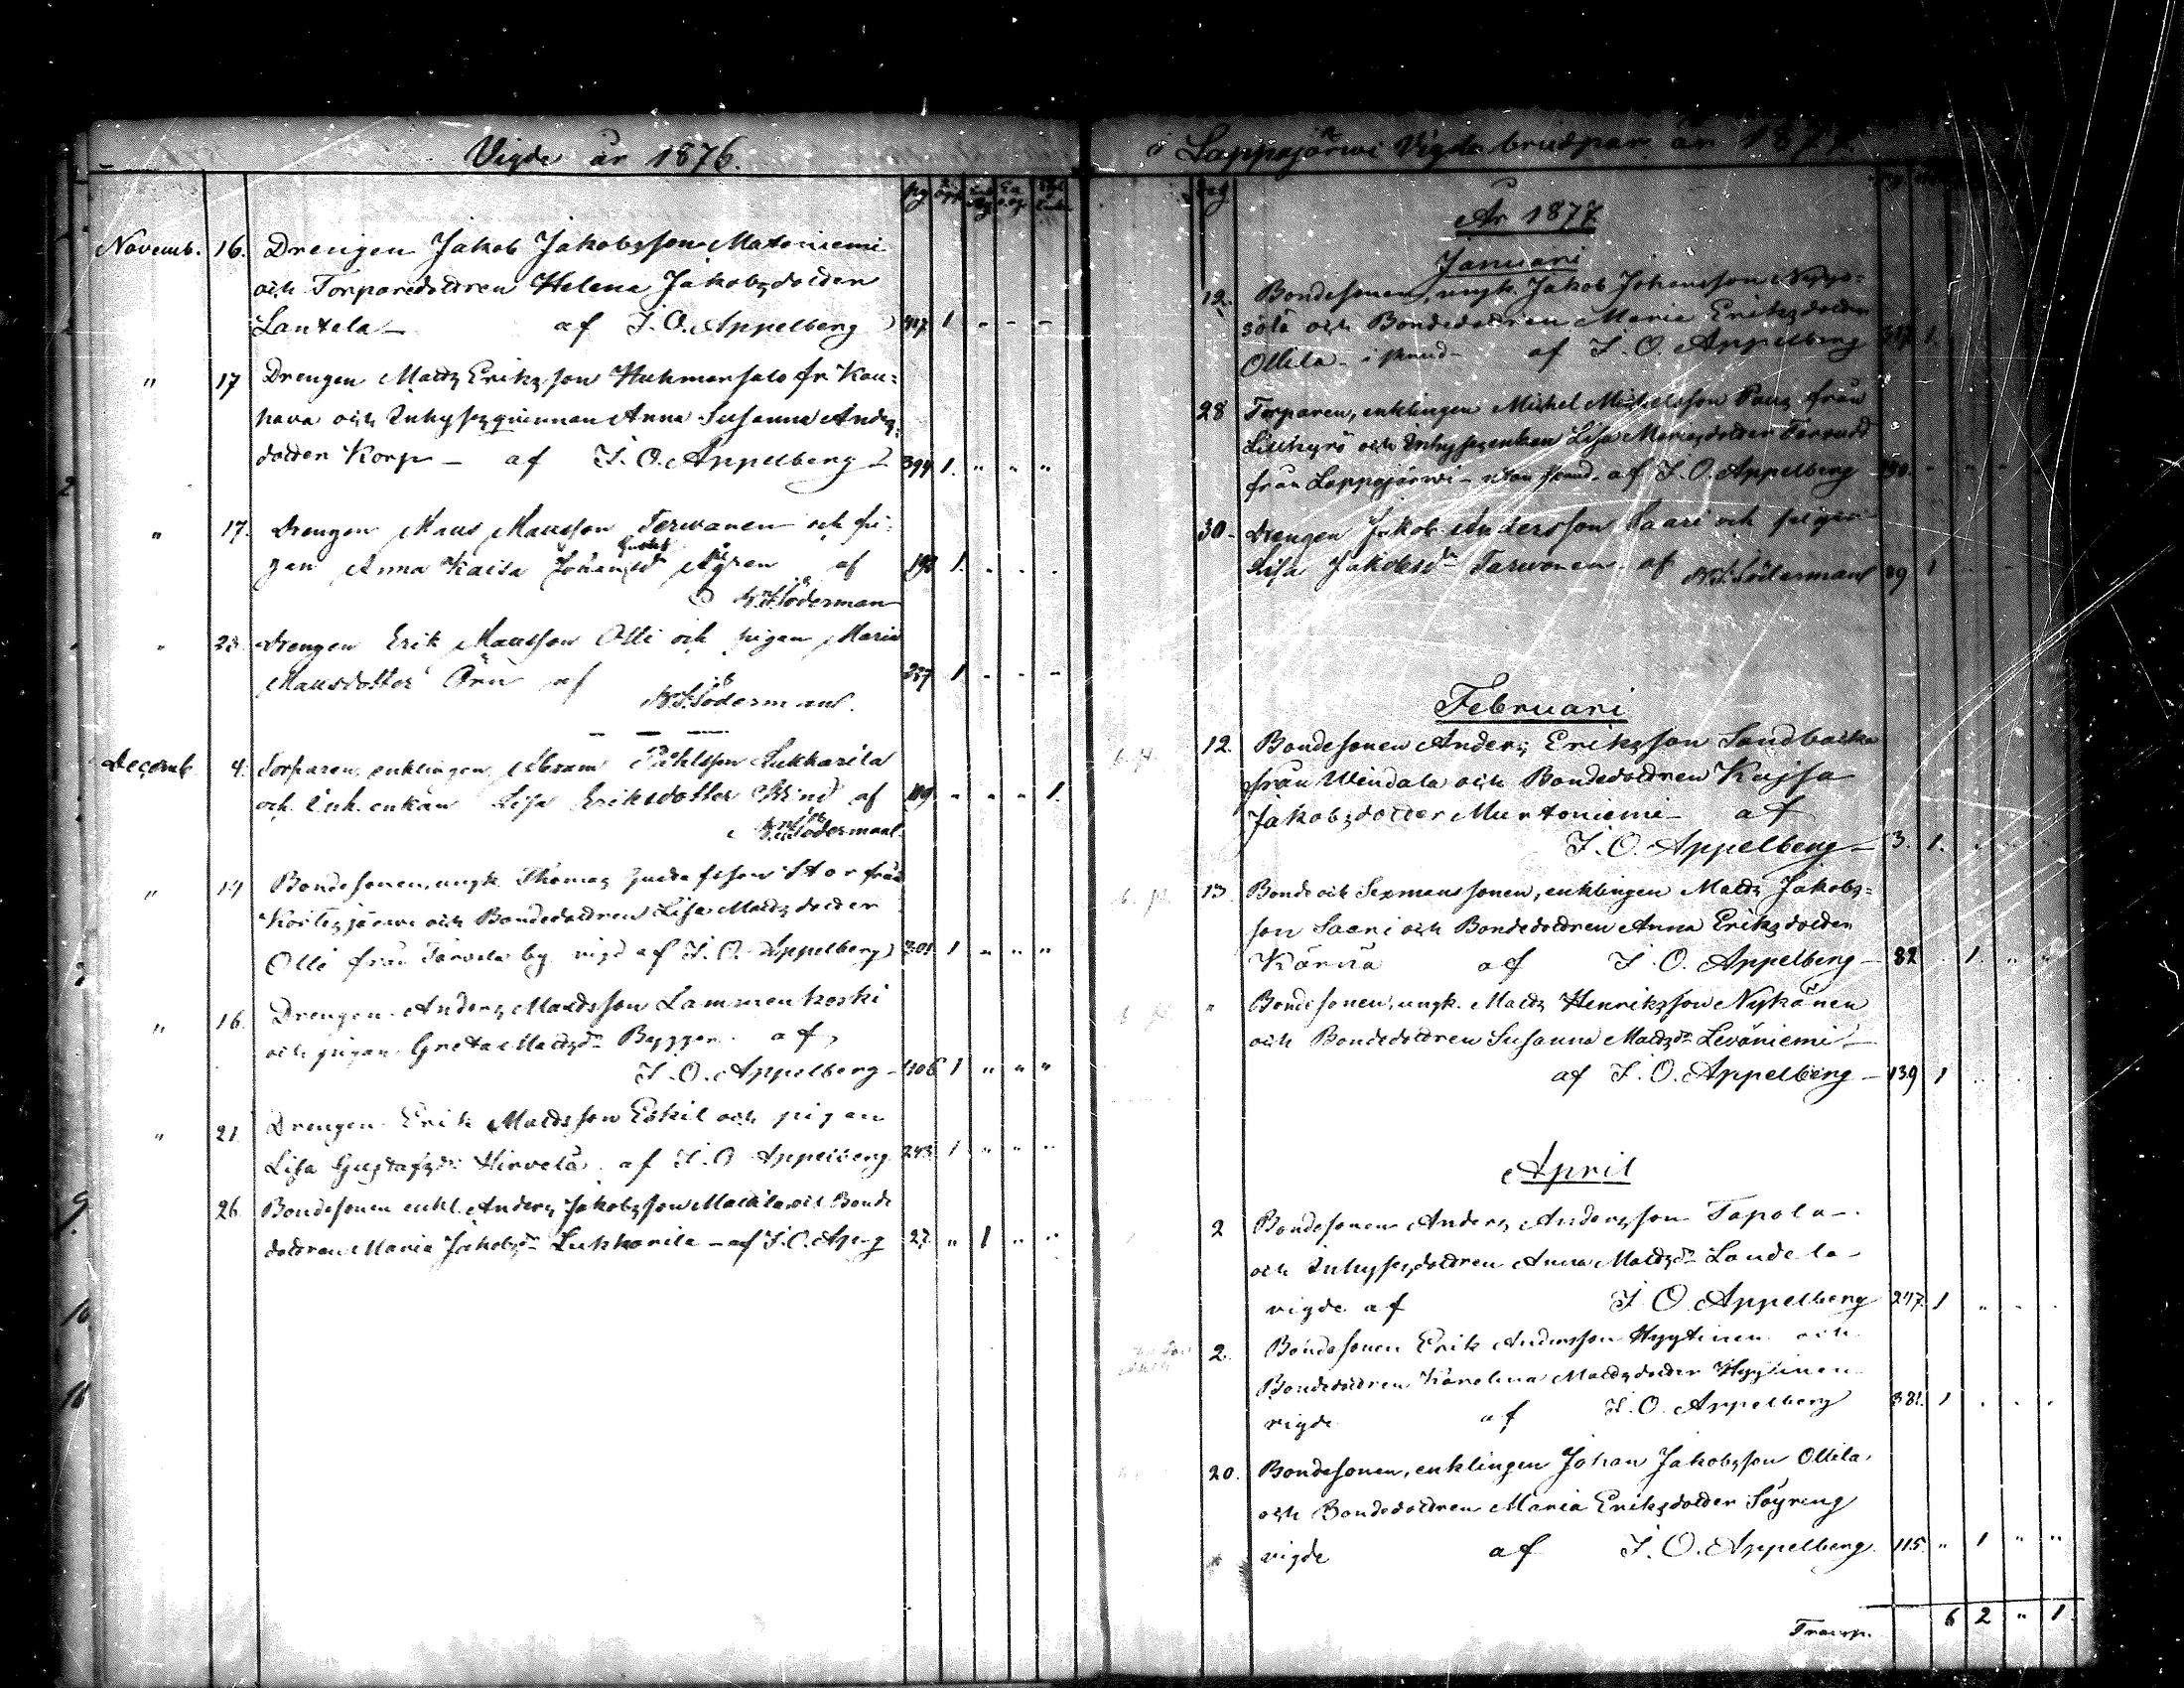 Vigde år 1876.
Novemb. 16. Drengen Jakob Jakobsson Matoniemi
och Torparedottren Helena Jakobsdotter
Lantela – af J. O. Appelberg 417 1 - - -
" 17 Drengen Matts Eriksson Huhmarsalo fr. Kau=
hava och Inhysesqvinnan Anna Susanna Anders=
dotter Korp – af J. O. Appelberg 399 1. " " "
" 17. Drengen Maus Mausson Terwanen och pi-
gan Anna Kaisa af 193 1. . . .
Söderman
Drengen Erik Mausson Olli och pigan Maria
Mausdotter af 237 1 - - -
Söderman.
Decemb. 4. Torparen enklingen Abram Påhlsson Lukkarila
och inh. enkan Lisa Eriksdotter af " " " 1.
Söderman
" Bondesonen, ungk. Thomas Gustafsson Stor från
Kortesjärvi och Bondedottren Lisa Mattsdotter
Olli från by vigd af J. O. Appelberg 301 1 " " "
" 16. Drengen Anders Mattsson Lammenkoski
och pigan Greta Mattsdr Byggar af
J. O. Appelberg – 406 1 " " "
" 21 Drengen Erik Mattsson Eskil och pigan
Lisa Gustafsdr Hirvelä af J. O. Appelberg 243 1 " " "
26 Bondesonen enkl. Anders Jakobsson och Bonde
dottren Maria Jakobsdr Lukkarila – af J. O. Ap-g 27. " 1 " "
i Lappajärwi Vigda brudpar år 1877.
År 1877
Januari
12. Bondesonen, ungk. Jakob Johansson
och Bondedottren Maria Eriksdotter
Ollila – af J. O. Appelberg 1.
28 Torparen, enklingen Mickel Mickelsson från
Lillkyrö och Inhysesenkan Lisa
från Lappajärwi – af J. O. Appelberg
30. Drengen Jakob Andersson Saari och pigan
Lisa Jakobsdr Tarwonen af Söderman 89 1
Februari
12. Bondesonen Anders Eriksson Sandbacka
från Windala och Bondedottren Kajsa
Jakobsdotter Murtoniemi – af
J. O. Appelberg – 3. 1.
13 Bonde och Sexmanssonen, enklingen Matts Jakobs=
son Saari och Bondedottren Anna Eriksdotter
Kärnä af J. O. Appelberg – 82 . 1. " "
" Bondesonen, ungk. Matts Henriksson Nykänen
och Bondedottren Susanna Mattsdr Leväniemi –
af J. O. Appelberg – 139 1
April
2 Bondesonen Anders Andersson Tapola –
och Inhysesdottren Anna Mattsdr Landela –
vigde af J. O. Appelberg 247. 1 " . .
2. Bondesonen Erik Andersson Hyytinen och
Bondedottren Karolina Mattsdotter Hyytinen
vigde af J. O. Appelberg 382. 1 . . .
20. Bondesonen, enklingen Johan Jakobsson Ollila,
och Bondedottren Maria Eriksdotter Söyring
vigde af J. O. Appelberg. 115. " 1 " "
Transp. 6 2 " 1